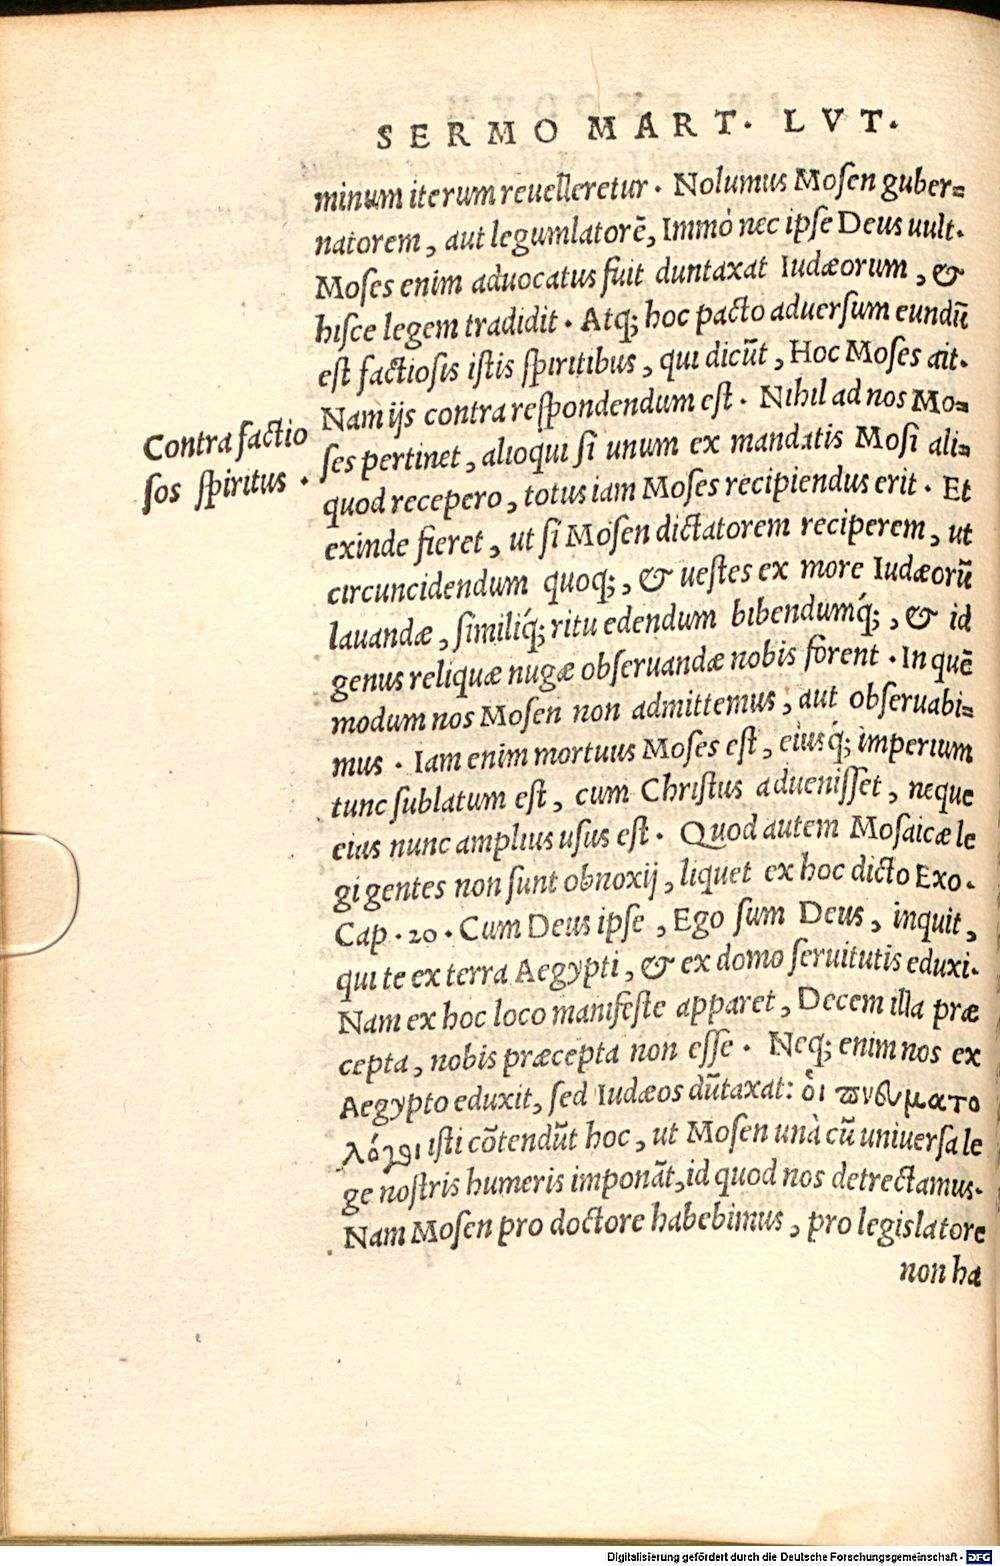 SERMO MART. LVT.
minum iterum reuelleretur. Nolumus Mosen guber=
natorem, aut legumlatorẽ, Immo nec ipse Deus uult.
Moses enim aduocatus fuit duntaxat Iudæorum, &
hisce legem tradidit. Atq; hoc pacto aduersum eundũ
est factiosis istis spiritibus, qui dicũt, Hoc Moses ait.
Nam ijs contra respondendum est. Nihil ad nos Mo=
Contra factio
sos spiritus.
ses pertinet, alioqui si unum ex mandatis Mosi ali=
quod recepero, totus iam Moses recipiendus erit. Et
exinde fieret, ut si Mosen dictatorem reciperem, ut
circuncidendum quoq;, & uestes ex more Iudæorũ
lauandæ, similiq́; ritu edendum bibendumq́;, & id
genus reliquæ nugæ obseruandæ nobis forent. In quẽ
modum nos Mosen non admittemus, aut obseruabi=
mus. Iam enim mortuus Moses est, eiusq́; imperium
tunc sublatum est, cum Christus aduenisset, neque
eius nunc amplius usus est. Quod autem Mosaicæ le
gi gentes non sunt obnoxij, liquet ex hoc dicto Exo.
Cap. 20. Cum Deus ipse, Ego sum Deus, inquit,
qui te ex terra Aegypti, & ex domo seruitutis eduxi.
Nam ex hoc loco manifeste apparet, Decem illa præ
cepta, nobis præcepta non esse. Neq; enim nos ex
Aegypto eduxit, sed Iudæos dũtaxat: οἱ πνευματο
λόγοι isti cõtendũt hoc, ut Mosen unà cũ uniuersa le
ge nostris humeris imponãt, id quod nos detrectamus.
Nam Mosen pro doctore habebimus, pro legislatore
non ha
Digitalisierung gefördert durch die Deutsche Forschungsgemeinschaft - DFG